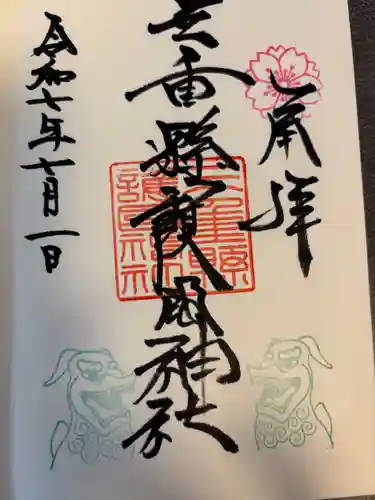 奉拝
三重縣護國神社
令和七年七月一日
三重縣護國神社